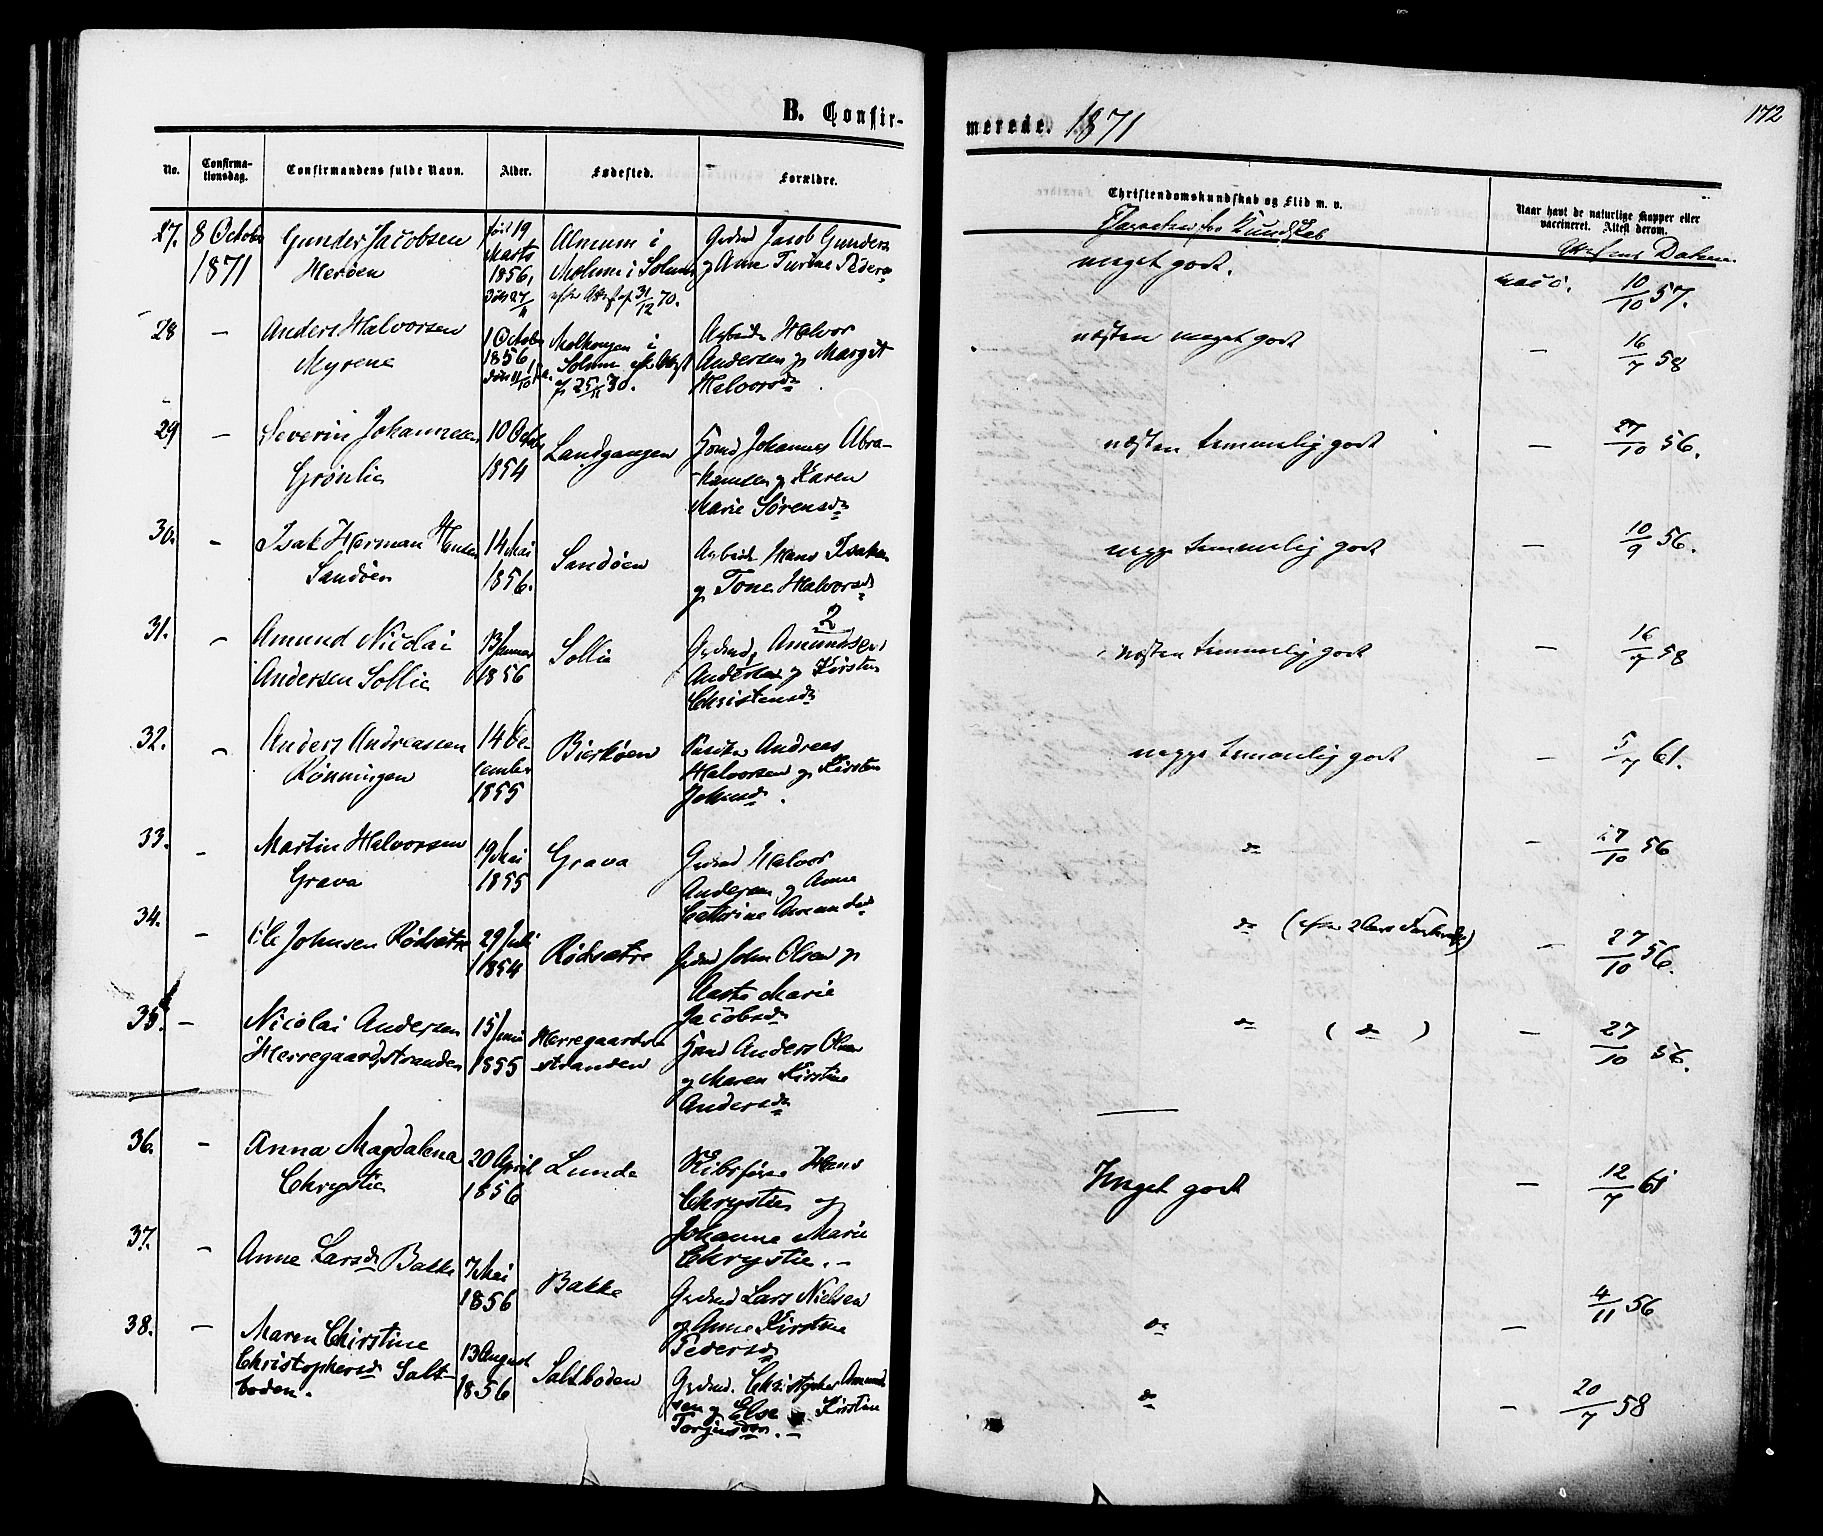 B. Confir-
merede. 1871
172
No.
Confirma-
tionsdag.
Confirmandens fulde Navn.
Alder.
Fødested.
Forældre.
Christendomskundskab og Flid m. v.
Naar havt de naturlige Kopper eller
vaccineret. Attest derom.
27. 8 Octobr
1871
Gunder Jacobsen
Herøen
19
Marts
1856,
i
i Solum
31/12 70.
Jacob Gunders
Anne
meget godt.
10/10 57.
28 –
Anders Halvorsen
Myrene
1 Octobr
1856,
i
Solum
Halvor
Andersen og Margit
Halvorsd
næsten meget godt
– 16/7 58
29 –
Severin Johannesen
Grønlie
10 Octbr
1854
Landgangen
Johannes Abra-
hamsen og Karen
Marie Sørensd
næsten temmelig godt
– 27/10 56.
30. –
Isak Herman Hansen
Sandøen
14 Mai
1856.
Sandøen
Arbeid Hans Isaksen
og Tone Halvorsd
neppe temmelig godt
– 10/9 56.
31. –
Amund Nicolai
Andersen Sollie
13 Januar
1856
Sollie
2
Amundsen
Andersen og Kirsten
Christensd
næsten temmelig godt
– 16/7 58
32. –
Anders Andreassen
Rønningen
14 De-
cember
1855
Bierkøen
Andreas
Halvorsen og Kirsten
Johnsd.
neppe temmelig godt
– 5/7 61.
33. –
Martin Halvorsen
Grava
19 Mai
1855
Grava
Halvor
Andersen og Anne
Cathrine Amundsd
do
– 27/10 56
34. –
Ole Johnsen Rødsætre
29 Juli
1854
Rødsætre
John Olsen og
Aaste Marie
Jacobsd
do
– 27/10 56.
35 –
Nicolai Andersen
Herregaardsstranden
15 Juni
1855
Herregaards-
stranden
Anders Olsen
og Maren Kirstine
Andersd
do ( do )
– 27/10 56.
36. –
Anna Magdalena
Chrystie
20 April
1856
Lunde
Hans
Chrystie og
Johanna Marie
Chrystie. –
Meget godt
– 12/7 61
37. –
Anne Larsd Bakke
7 Mai
1856
Bakke
Lars Nielsen
og Anne Kirstine
Pedersd
do
– 4/11 56
38. –
Maren Chirstine
Christophersd Salt-
boden.
13 August
1856
Saltboden
Christopher Amund
sen og Else Kirstine
Torjusd. –
do
– 20/7 58